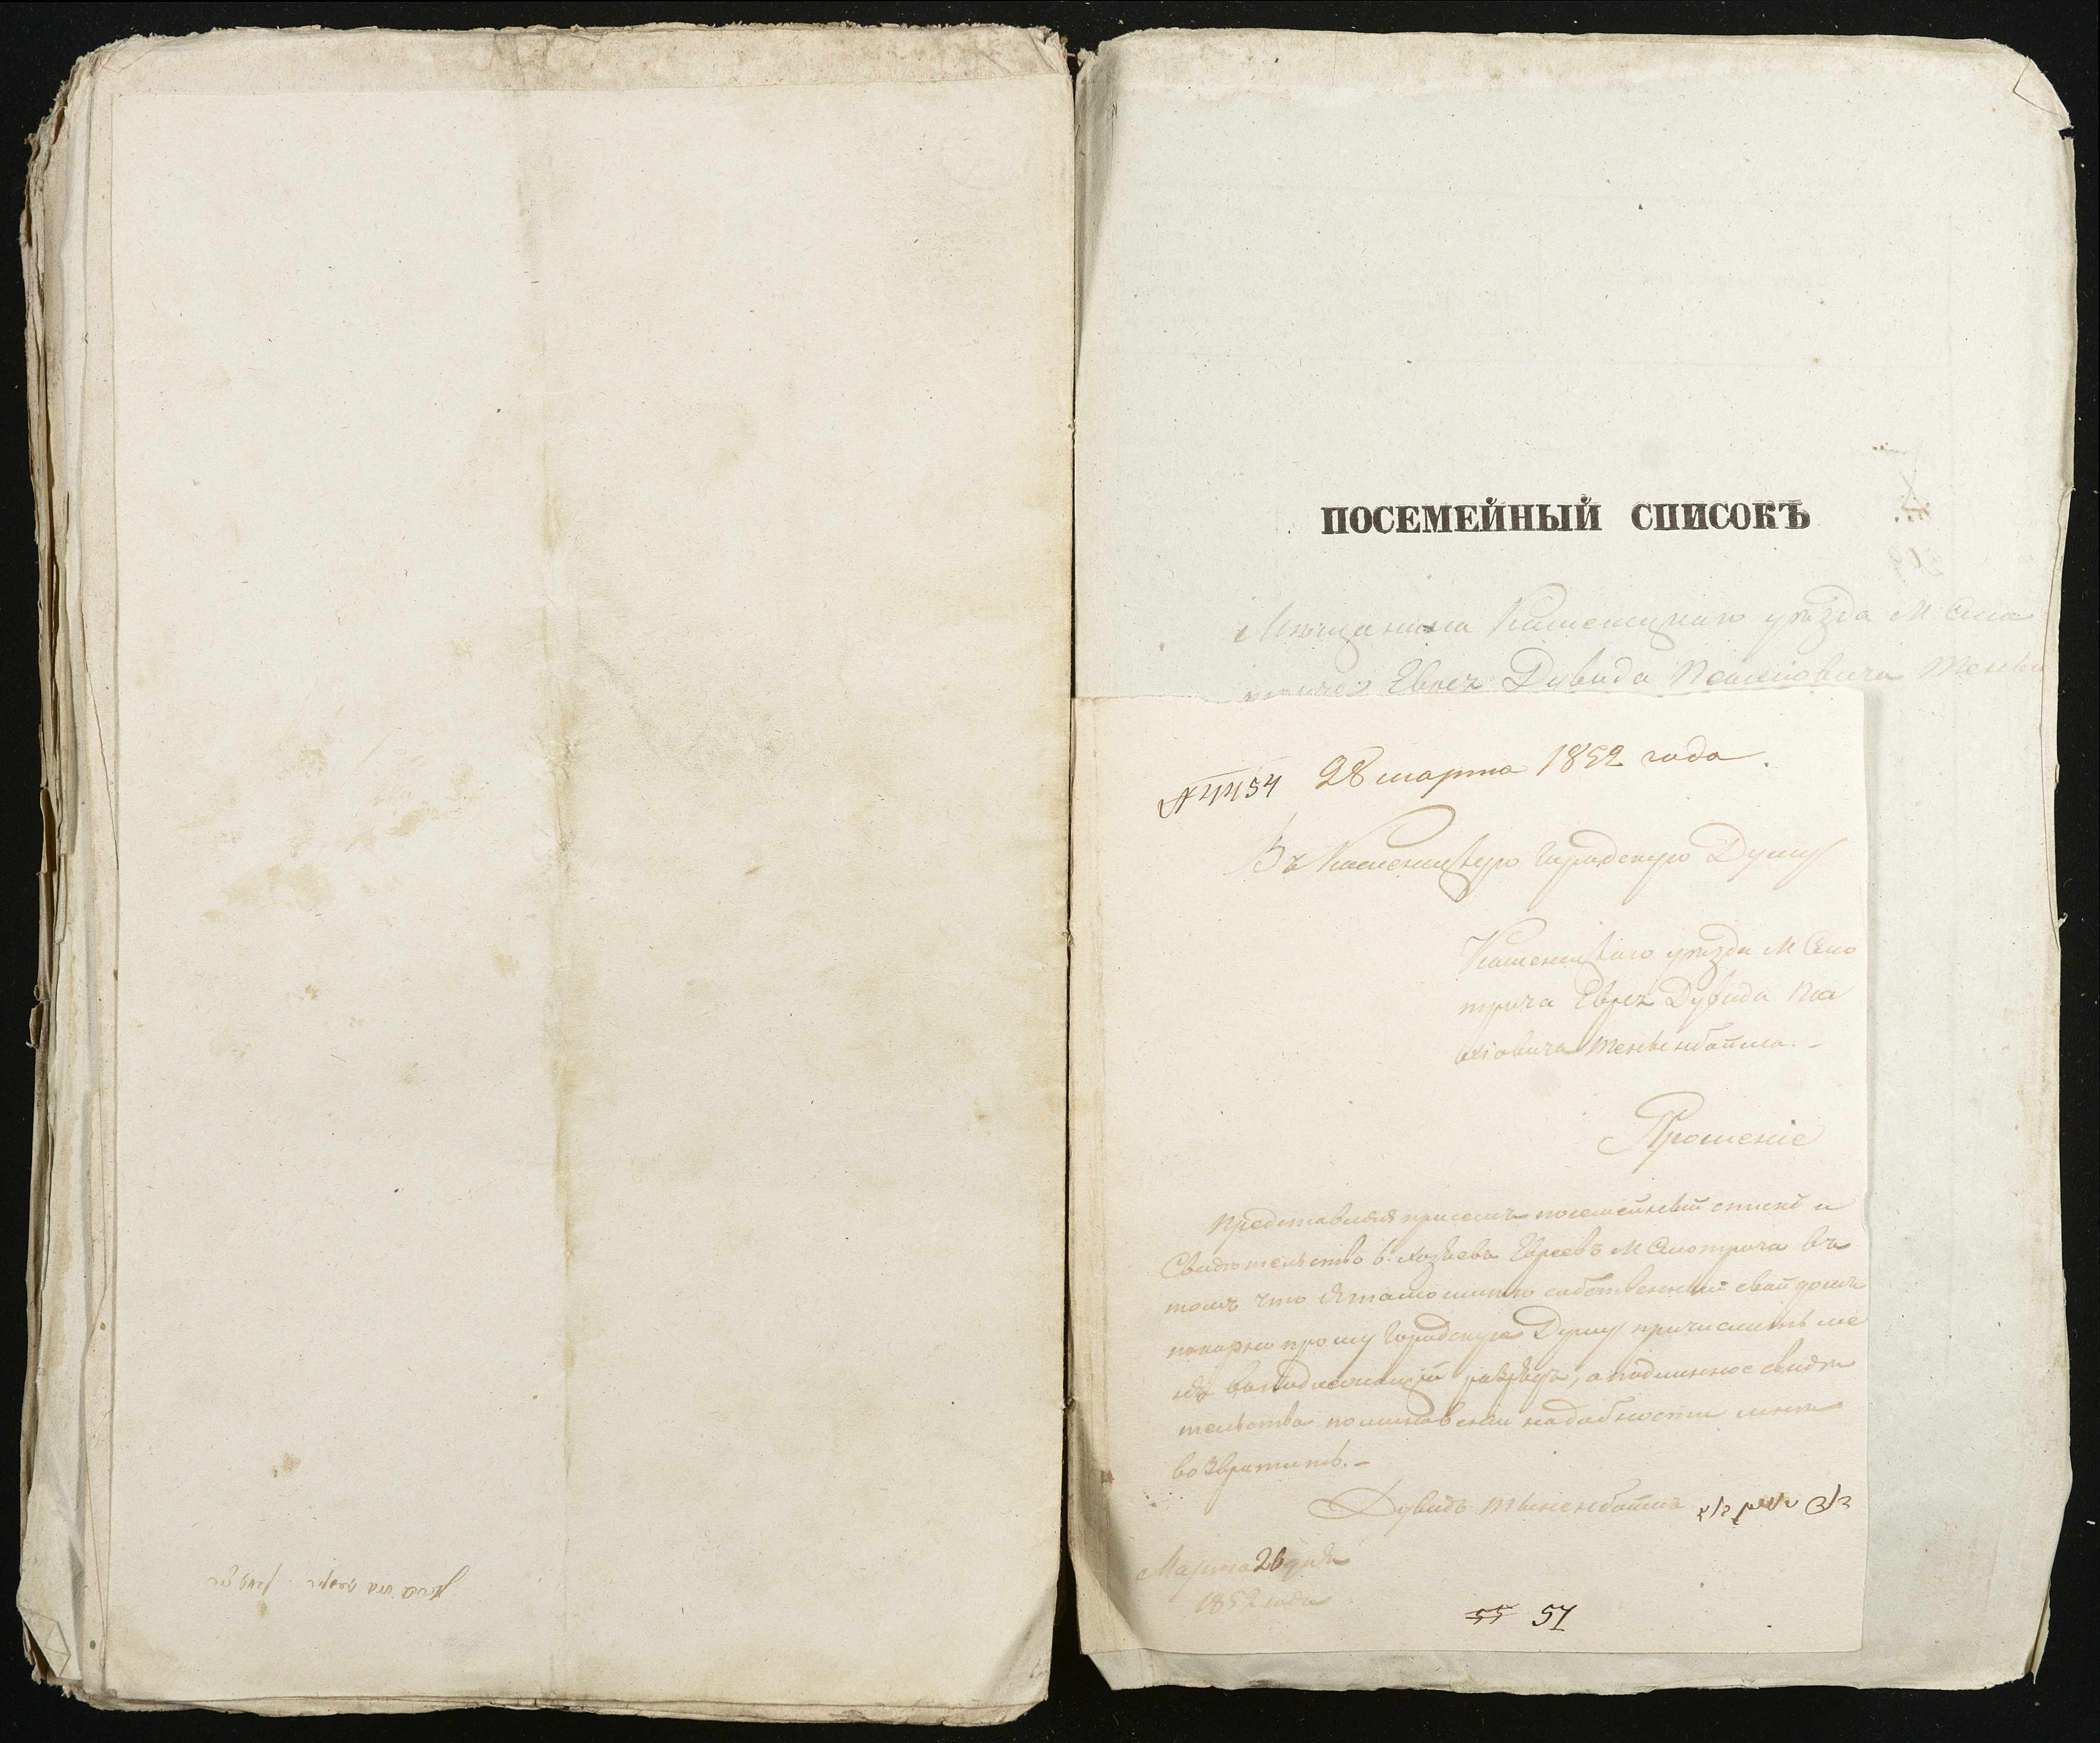 ПОСЕМЕЙНЫЙ СПИСОКЪ
Мѣщанина Каменецкаго уѣзда М Смо
трича Еврея Дувида
№ 4454 28 марта 1852 года.
Въ Каменецкую Городскую Думу
Каменецкаго уѣзда М Смо
трича Еврея Дувида
Тененбойма. –
Прошеніе
Представляя присемъ посемейный списокъ и
Свидѣтельство 6. хозяевъ Евреевъ М Смотрича въ
томъ что я имѣю собственный свой домъ
покорно прошу Городскую Думу причислить ме
ня въ разрядъ, а подлинное свидѣ
тельство по минованіи надобности мнѣ
возвратить. –
Дувидъ Тененбоймъ
Марта 26 дня
1852 года
55 57